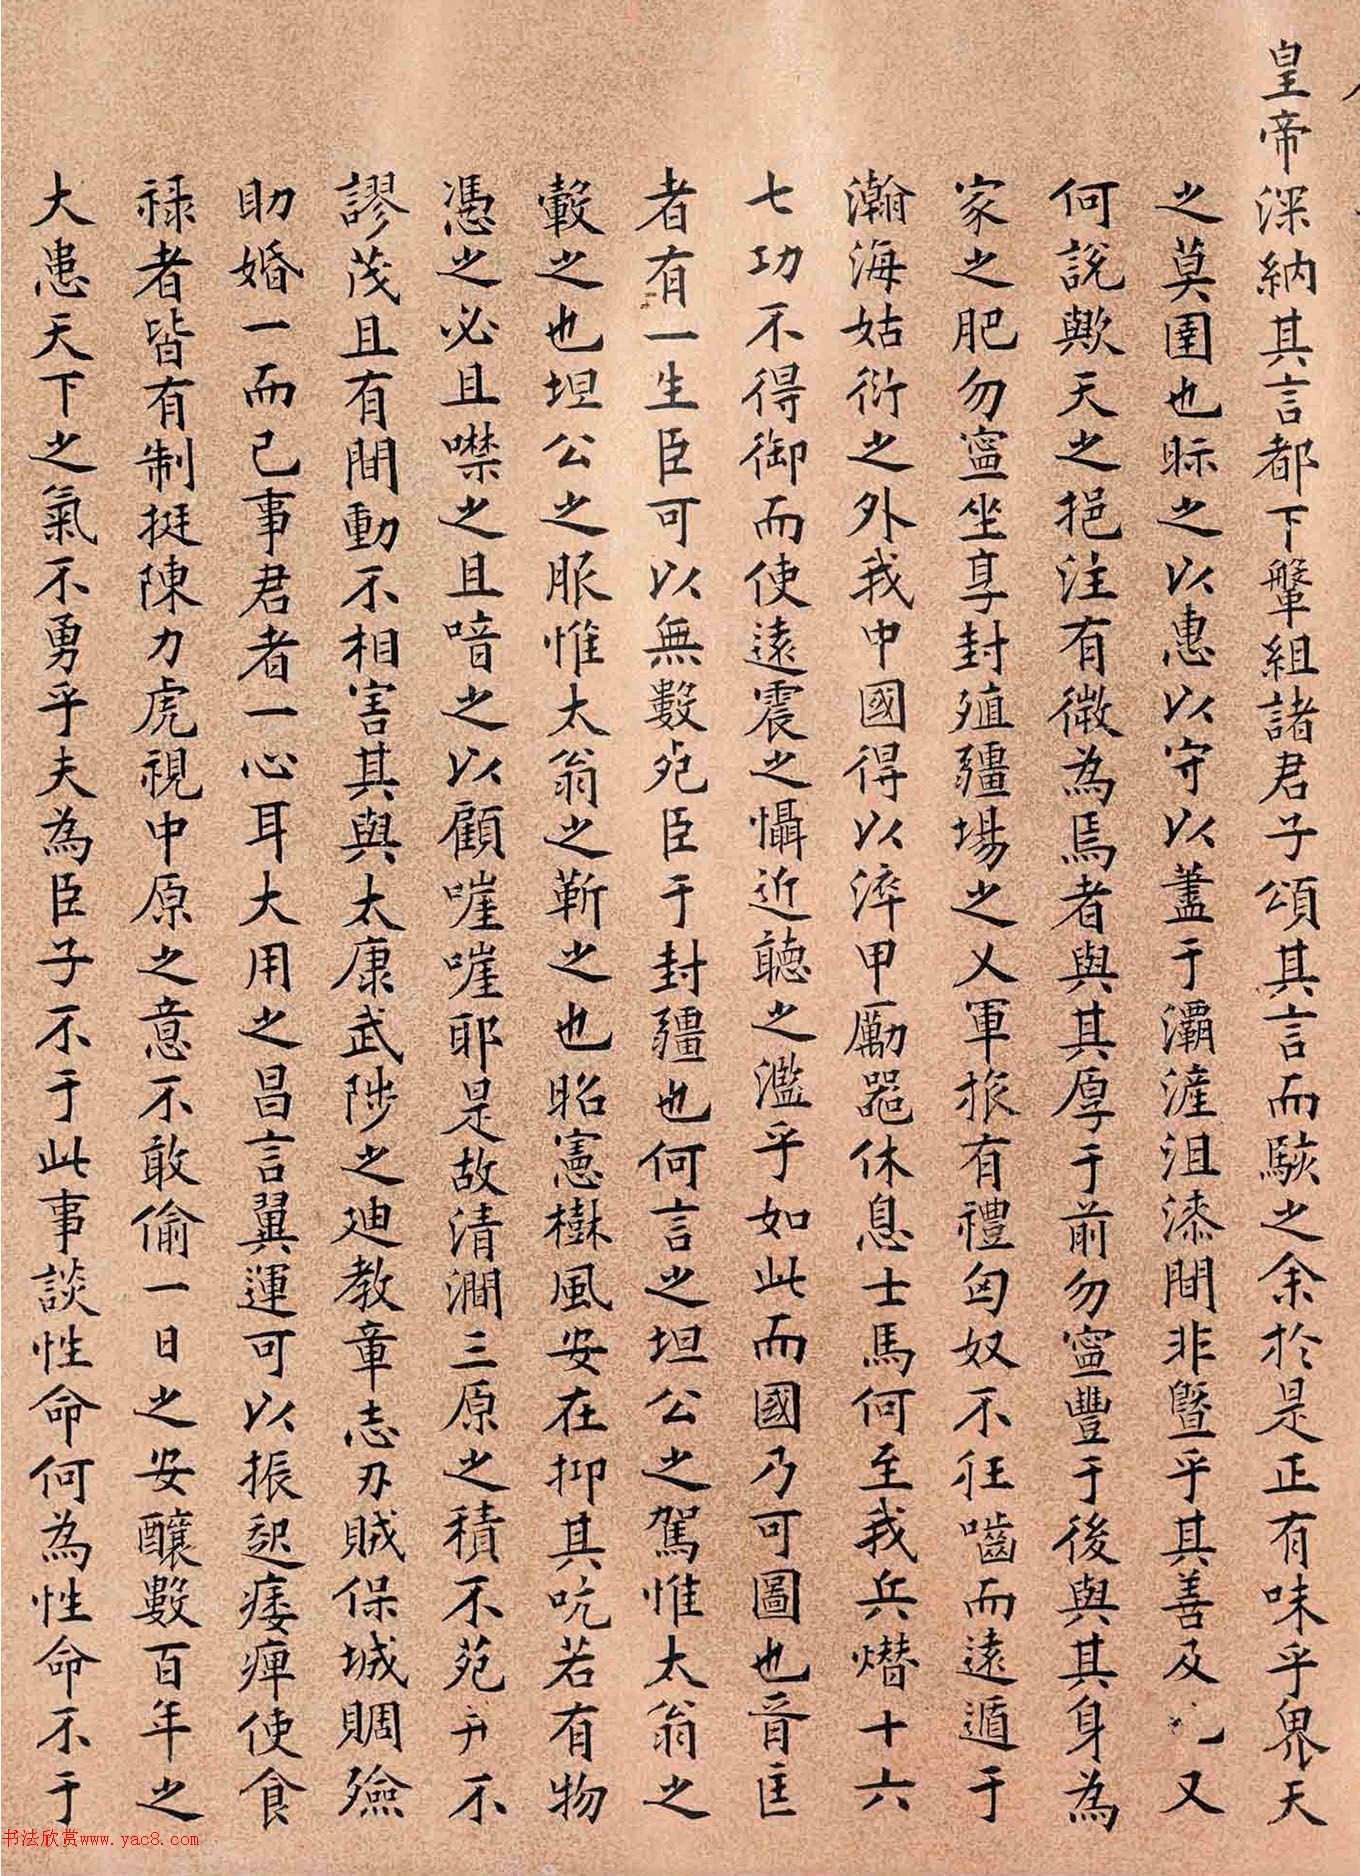 皇帝深納其言都下鞶組諸君子頌其言而駭之余於是正有味乎畀天
之莫圉也眎之以惠以守以藎于灞滻沮漆間非曁乎其善及又
何說歟天之挹注有微為焉者與其厚于前勿寍豐于後與其身為
家之肥勿寍坐享封殖疆場之乂軍旅有禮匈奴不狂嚙而遠遁于
瀚海姑衍之外我中國得以淬甲勵器休息士馬何至我兵熸十六
七功不得御而使遠震之懾近聽之濫乎如此而國乃可圖也晉匡
者有一生臣可以無數死臣于封疆也何言之坦公之駕惟太翁之
轂之也坦公之服惟太翁之靳之也昭憲樹風安在抑其吭若有物
憑之必且噤之且喑之以顧嘊嘊耶是故清澗三原之積不苑不
謬茂且有間動不相害其與太康武陟之迪教章志刃賊保城賙殮
助婚一而已事君者一心耳大用之昌言翼運可以振起痿痺使食
祿者皆有制挺陳力虎視中原之意不敢偷一日之安釀數百年之
大患天下之氣不勇乎夫為臣子不于此事談性命何為性命不于
书法欣赏www.yac8.com